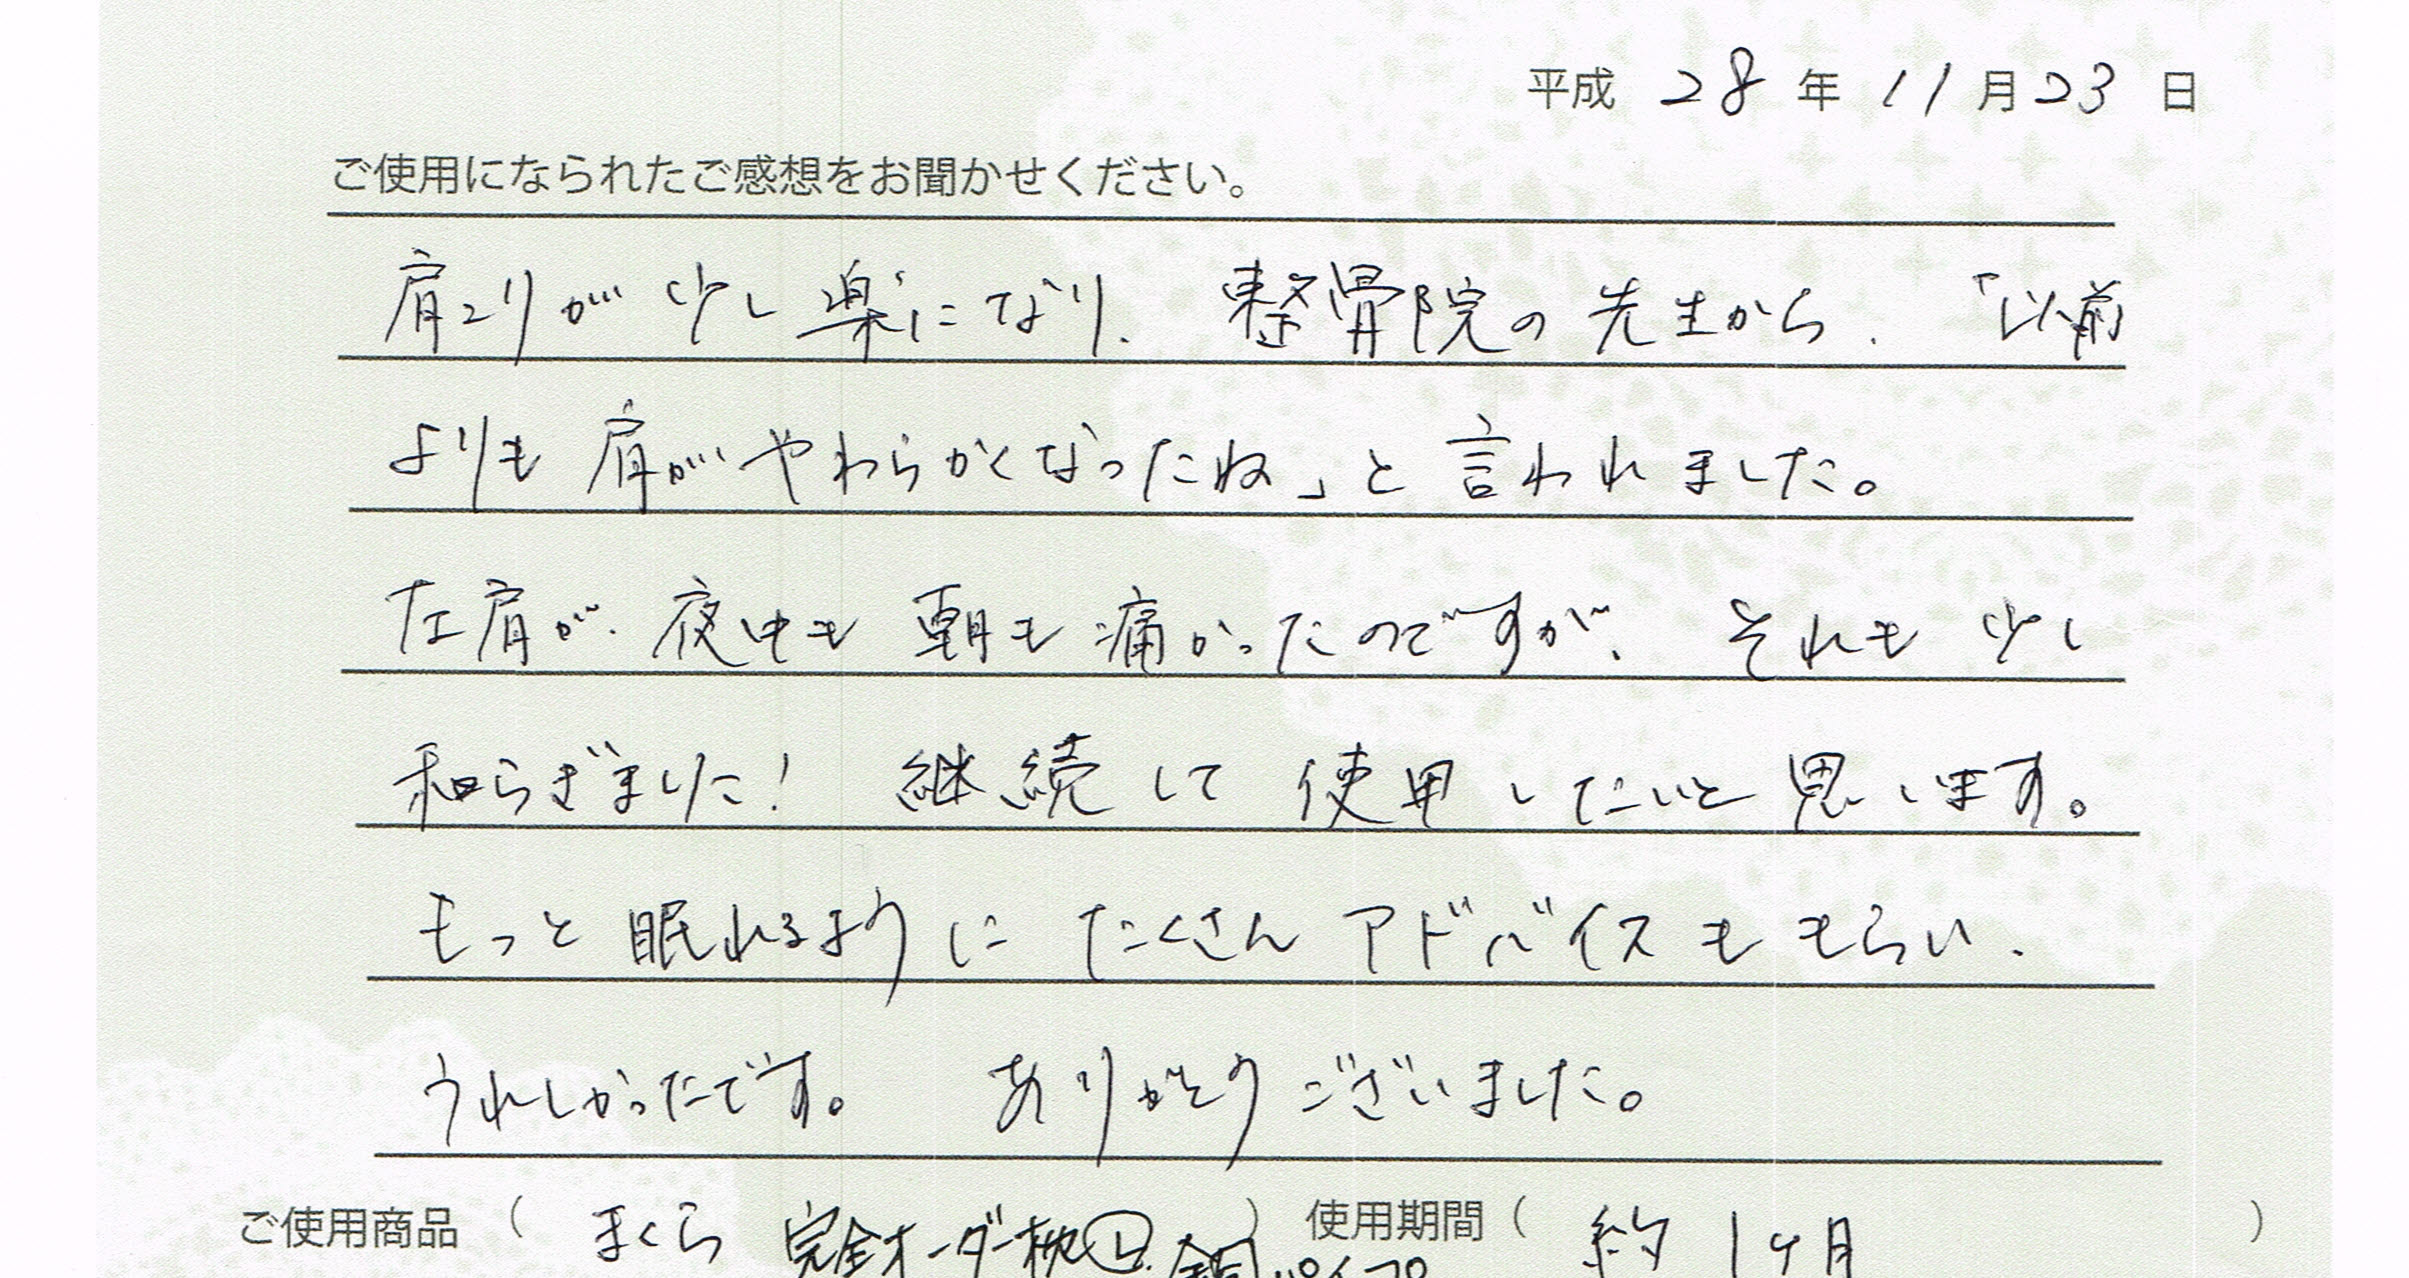 平成 28 年 11 月 23 日
ご使用になられたご感想をお聞かせください。
肩コリが少し楽になり、整骨院の先生から、「以前
よりも肩がやわらかくなったね」と言われました。
左肩が、夜中も朝も痛かったのですが、それも少し
和らぎました! 継続して使用したいと思います。
もっと眠れるようにたくさんアドバイスももらい、
うれしかったです。 ありがとうございました。
ご使用商品 ( まくら 完全オーダー枕 パイプ ) 使用期間 ( 約1ヶ月 )